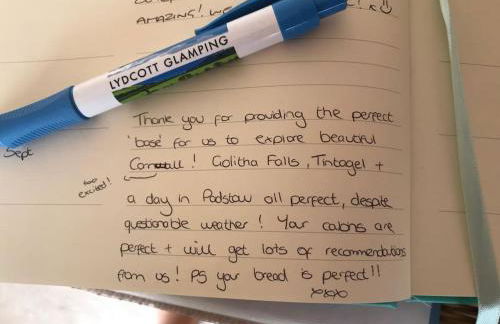 AMAZING! WE
LYDCOTT GLAMPING
Sept
Thank you for providing the perfect
'base' for us to explore beautiful
Cornwall! Golitha Falls, Tintagel +
too
excited!
a day in Padstow all perfect, despite
questionable weather! Your cabins are
perfect + will get lots of recommendations
from us! PS your bread is perfect!!
xoxo